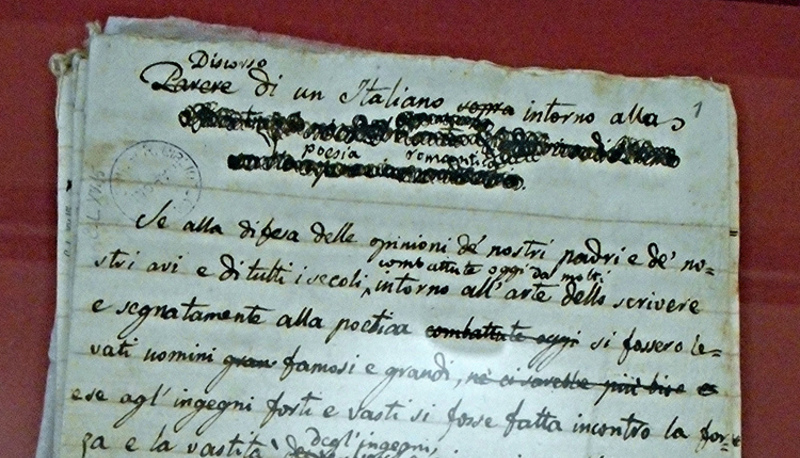 Discorso
Parere di un Italiano sopra intorno alla
poesia romantica
Se alla difesa delle opinioni de' nostri padri e de' no=
combattute oggi da molti
stri avi e di tutti i secoli, intorno all'arte dello scrivere
e segnatamente alla poetica combattute oggi si fossero le=
vati uomini gran famosi e grandi, né ci sarebbe più
ese agl'ingegni forti e vasti si fosse fatta incontro la for=
degl'ingegni,
za e la vastità
1